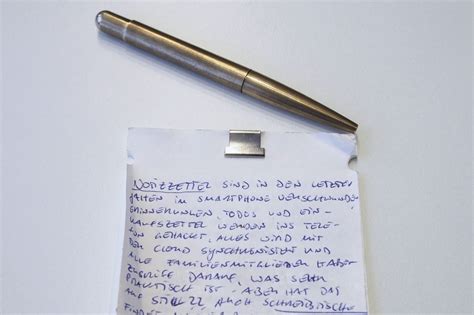 NOTIZZETTEL SIND IN DEN LETZTEN
JAHREN IM SMARTPHONE VERSCHWUNDEN.
ERINNERUNGEN, TODOS UND EIN-
KAUFSZETTEL WERDEN INS TELE-
FON GEHACKT, ALLES WIRD MIT
DER CLOUD SYNCHRONISIERT UND
ALLE FAMILIENMITGLIEDER HABEN
ZUGRIFF DARAUF, WAS SEHR
PRAKTISCH IST. ABER HAT DAS
AUCH SCHREIBTISCHE